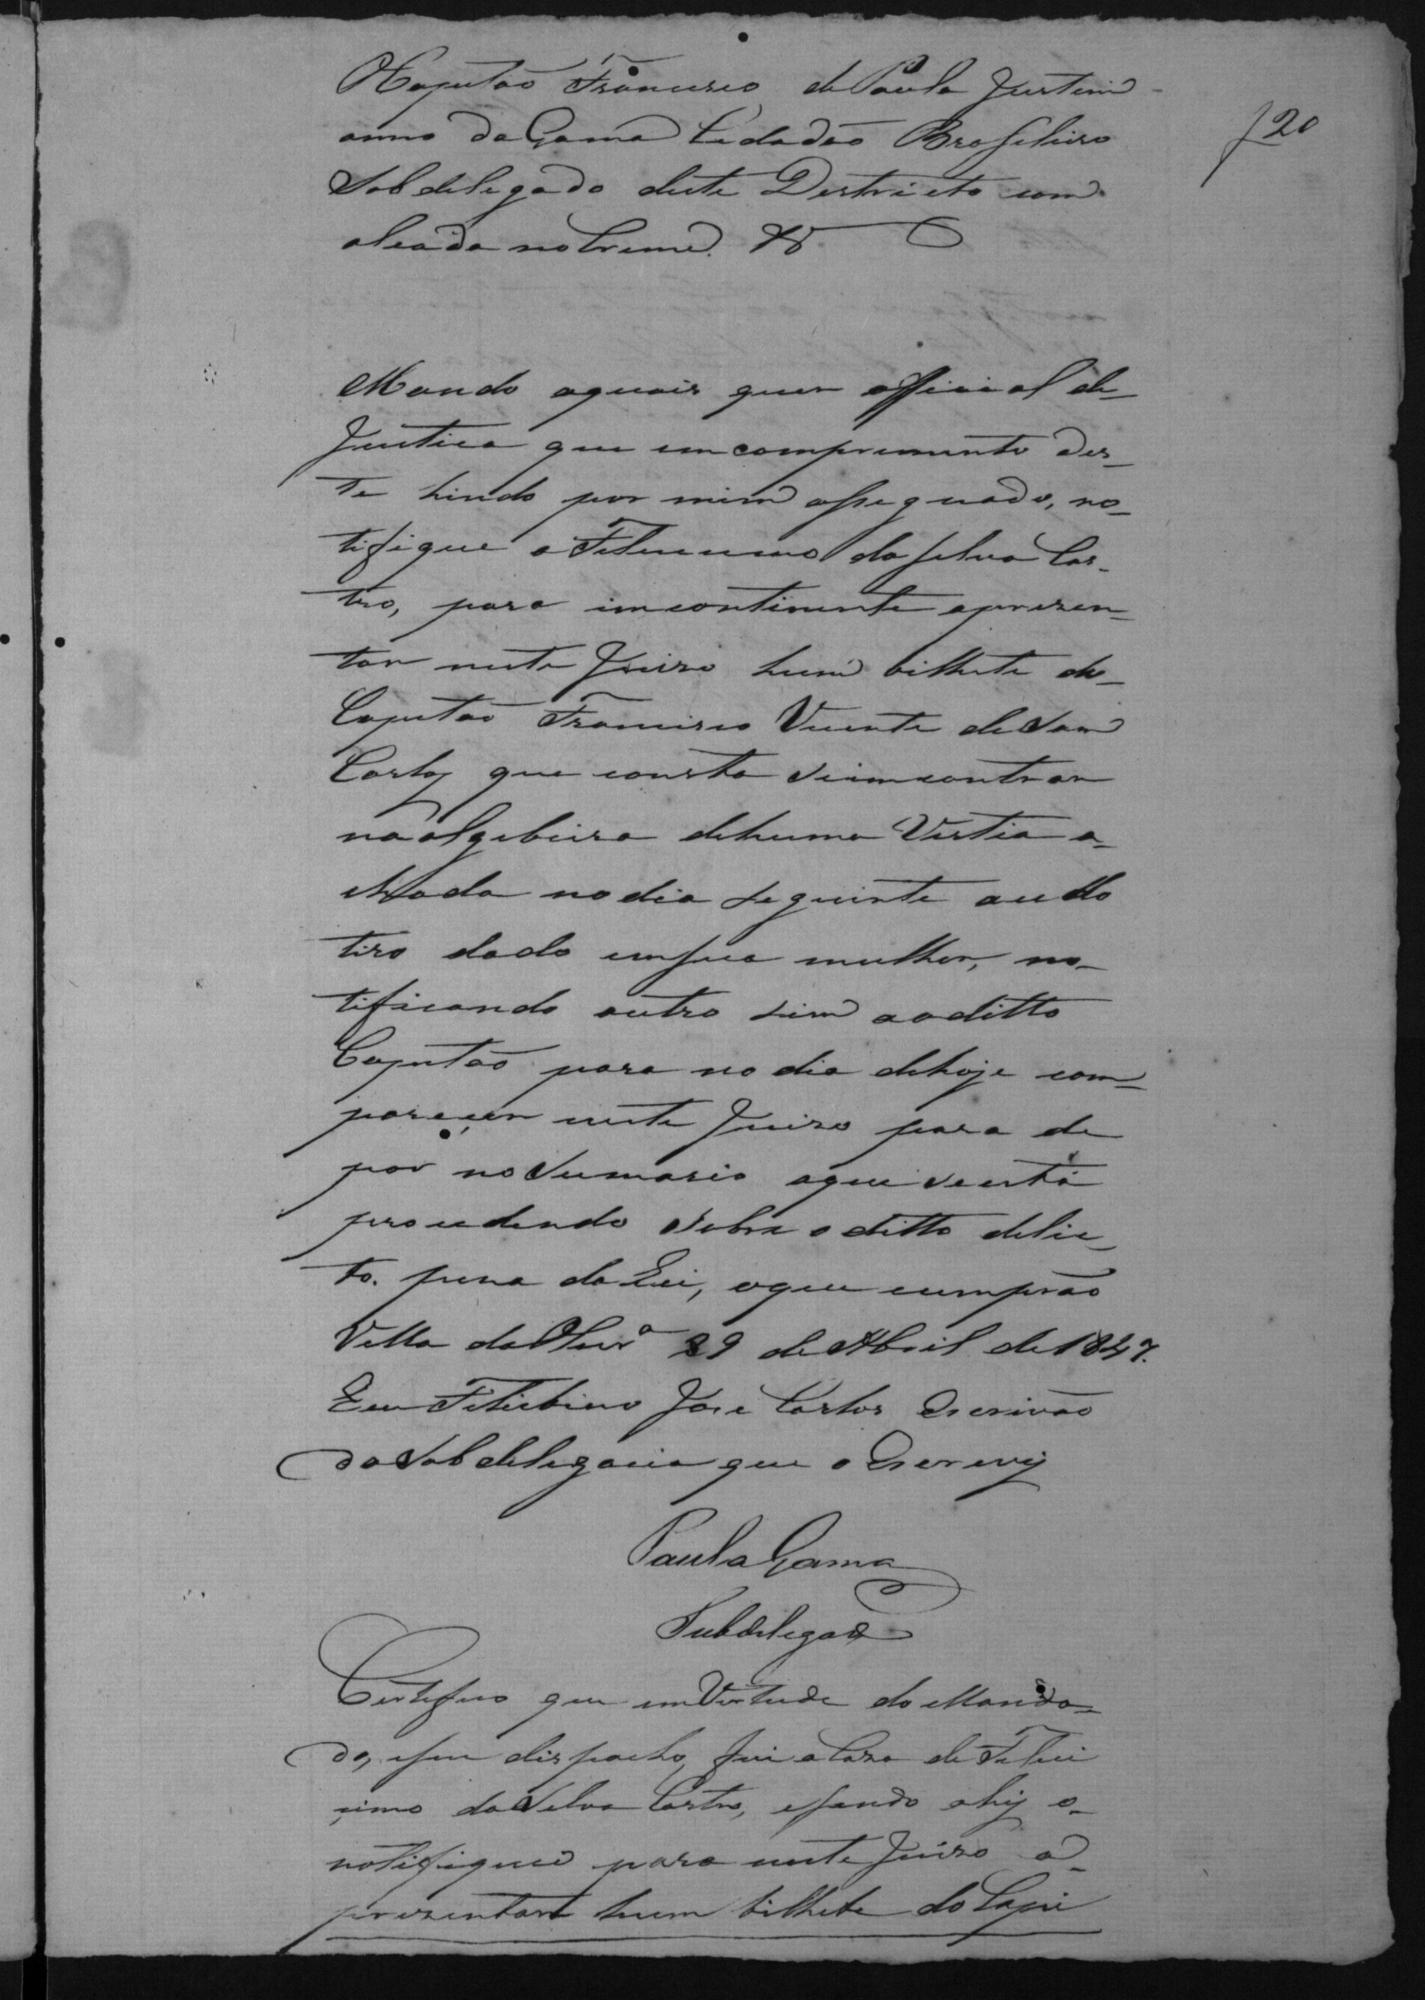 O Capitaõ Francisco de Paula Justini
anno da Gama Cidadaõ Brasileiro
Subdelegado deste Destricto com
alçada no Crime &
f 20
Mando aquais quer official de
Justiça que em comprimento des-
te hindo por mim assignado, no-
tifique a Felicissimo da Silva Cas-
tro, para incontinente aprezen-
tar neste Juizo hum bilhete do
Capitaõ Francisco Vicente de Sam
Carlos que consta se incontrar
na algibeira de huma Vestia a-
chada no dia seguinte ao do
tiro dado em sua mulher, no-
tificando outro sim ao ditto
Capitaõ para no dia de hoje com-
parecer neste Juizo para de
por no Sumario a que se está
procedendo sobre o ditto delic-
to. pena da Lei, o que cumpraõ
Villa da 29 de Abril de 1847.
Eu Felisbino Joze Carlos Escrivaõ
da Subdelegacia que o Escrevi
Paula Gama
Subdelegado
Certifico que em Virtude do Manda-
do, e seu dispacho, fui a Caza de Felici
cimo da Silva Castro, e sendo ahy o
notifiquei para neste Juizo a-
prezentar hum bilhete do Capi